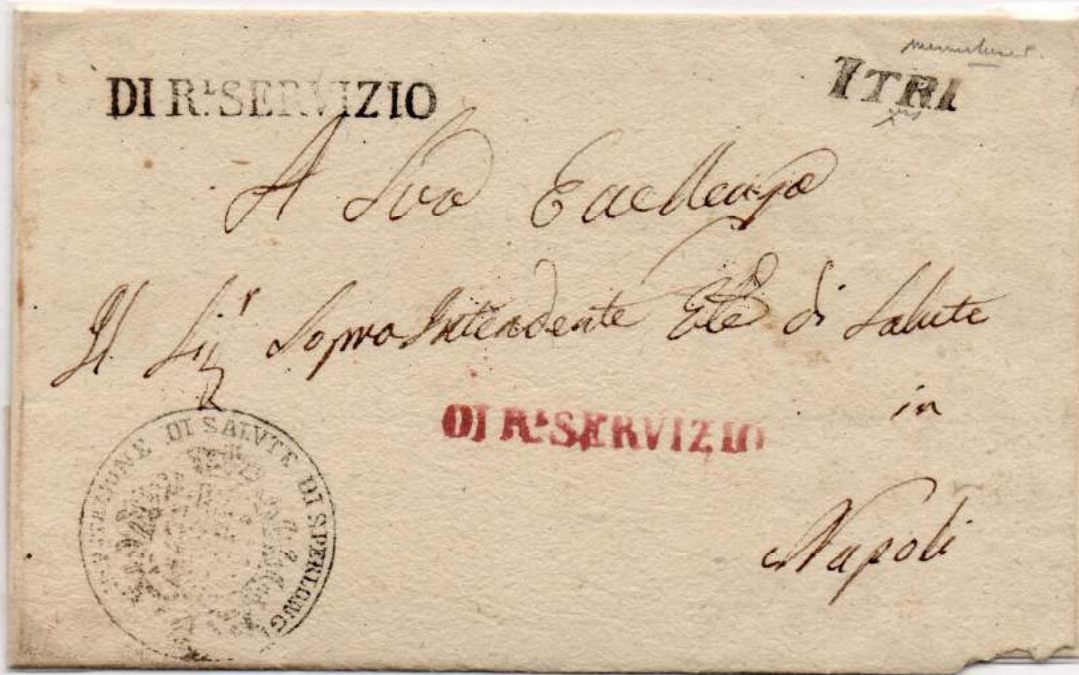 DI R.L SERVIZIO
ITRI
A Sua Eccellenza
Il Sig.r Sopraintendente Gle di Salute
in
Napoli
DI R.L SERVIZIO
DEPUTAZIONE DI SALVTE DI SPERLONGA